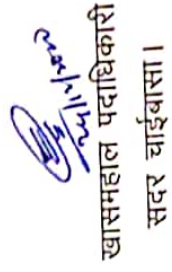 खासमहाल पदाधिकारी
सदर चाईबासा।